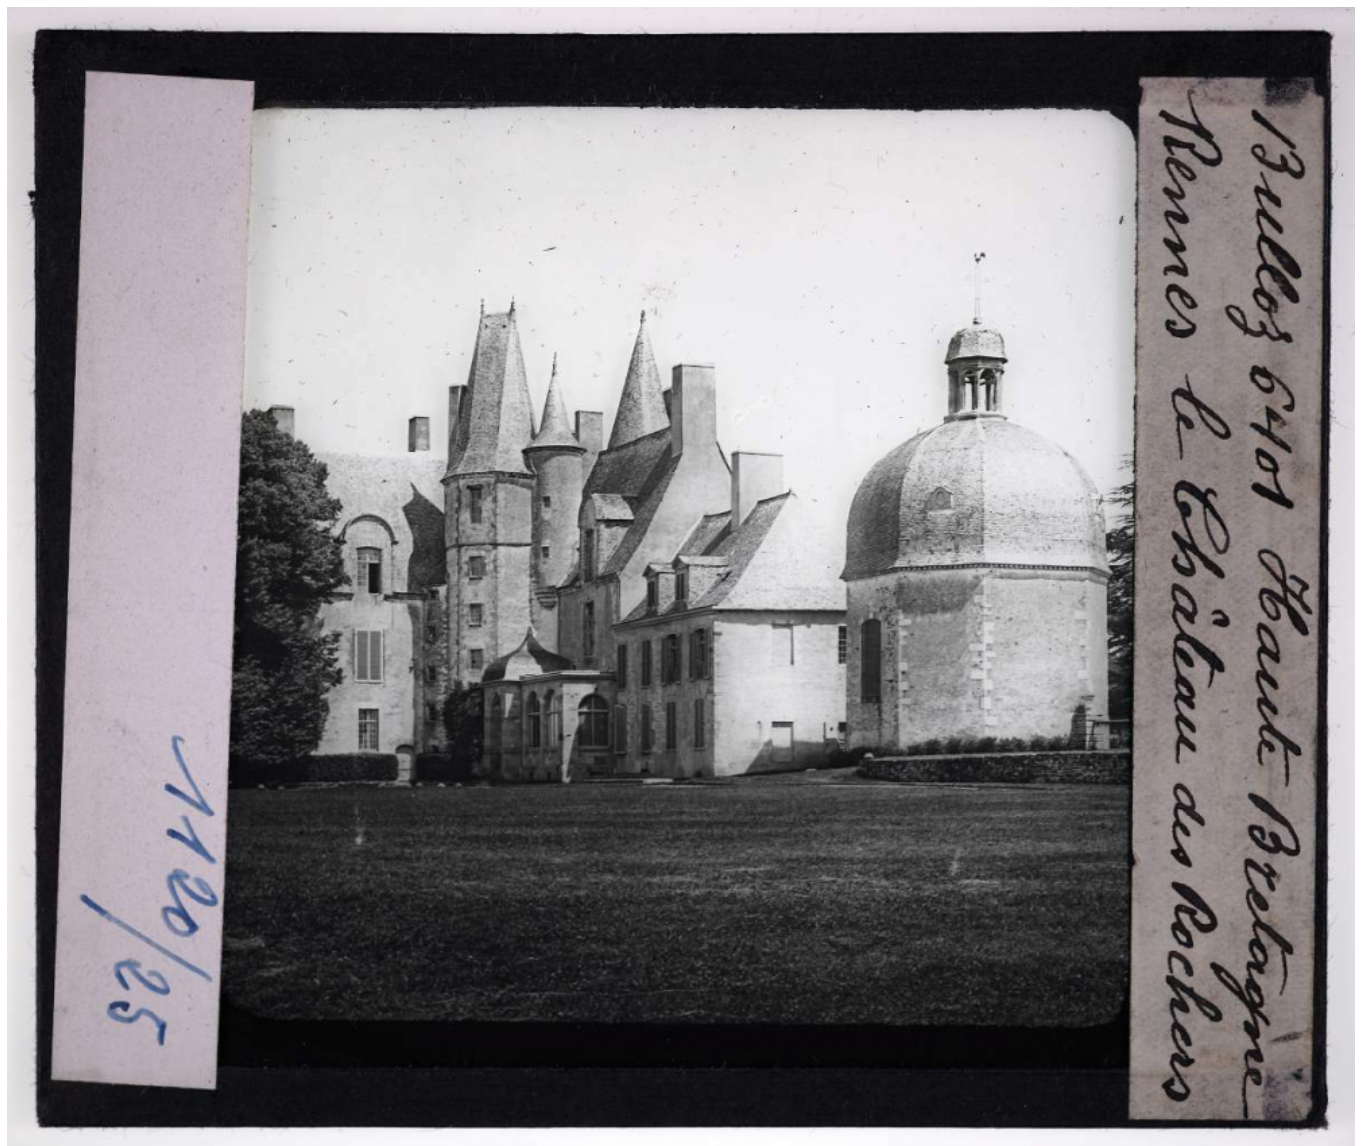 Bulloz 6401 Haute Bretagne
Rennes le Château des Rochers
1120/25